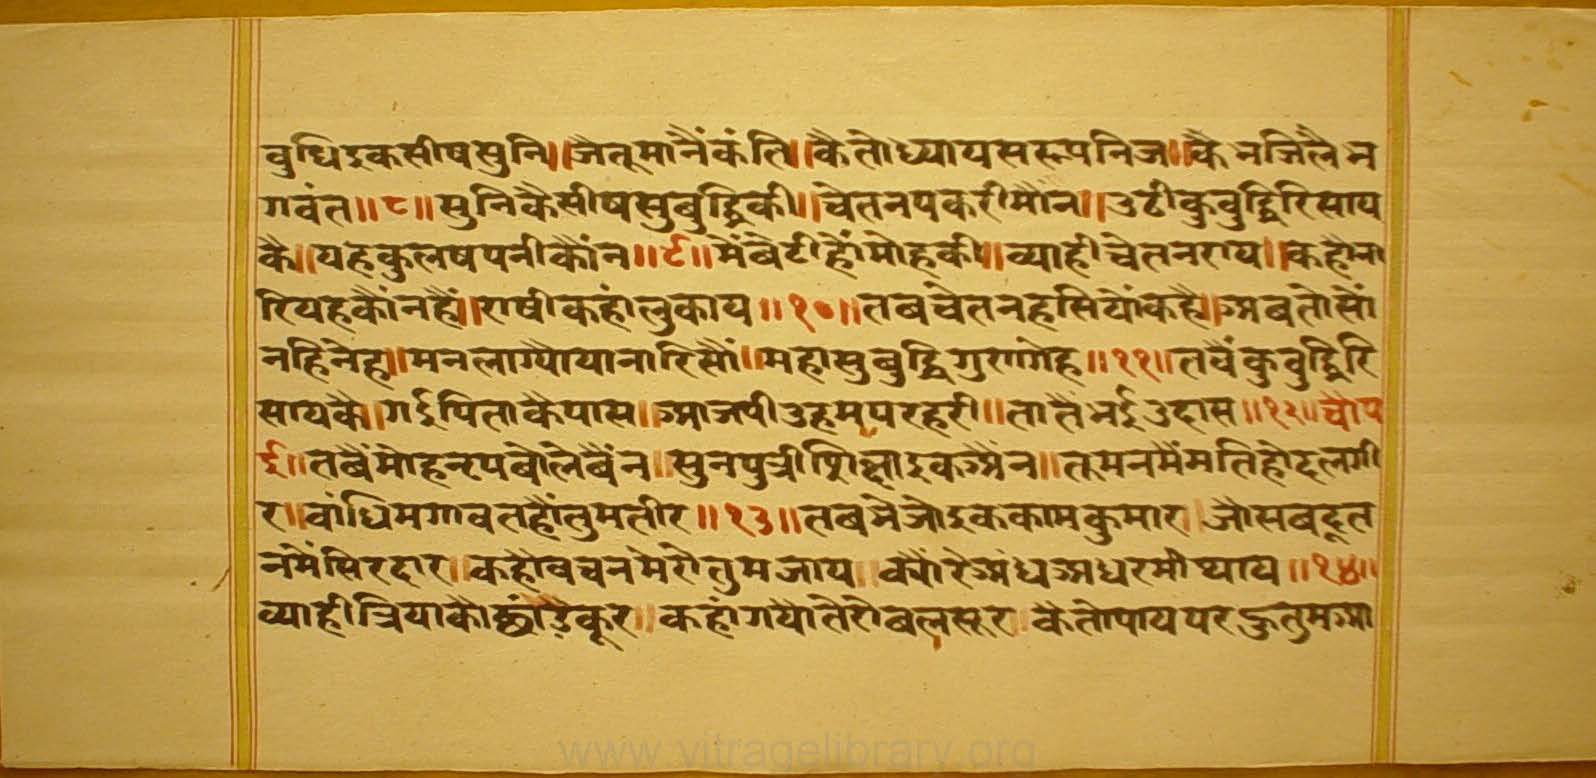 वुधिइकसीषसुनि॥जैतूमानैंकंति॥कैतोध्यायसरूपनिज॥कैनजिलैन
गवंत॥८॥सुनिकैसीषसुबुद्धिकी॥चेतनपकरीमौन॥उठीकुवुद्धिरिसाय
कै॥यहकुलषपनीकौंन॥९॥मेंबैटीहौंमोहकी॥व्याहीचेतनराय॥कहौना
रियहकौंनहैं॥राषीकहांलुकाय॥१०॥तबचेतनहसियोंकहै॥अबतोसौं
नहिनेह॥मनलाग्यौयानारिसौं॥महासुबुद्धिगुरागेह॥११॥तवैंकुवुद्धिरि
सायकै॥गईपिताकैपास॥आजपीउहमपरहरी॥तातैंनईउदास॥१२॥चौप
ई॥तबैंमोहनृपबोलेबैंन॥सुनपुत्रीशिक्षाइकअैंन॥तूमनमैंमतिहोदलगी
र॥वांधिमगावतहौंतुमतीर॥१३॥तबमेजोइककामकुमार॥जौसबदूत
नमेंसिरदार॥कहौवचनमेरोतुमजाय॥क्यौंरेअंधअधरमीथाय॥१४॥
व्याहीत्रियाकौछांडैकूर॥कहांगयौतेरोबलसूर॥कैतोपायपरहुतुमआ
www.vitragelibrary.org